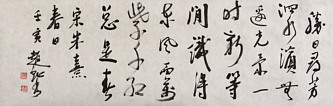 勝日尋芳
泗水濱無
邊光景一
時新等
閒識得
東風面萬
紫千紅
總是春
宋朱熹
春日
壬寅